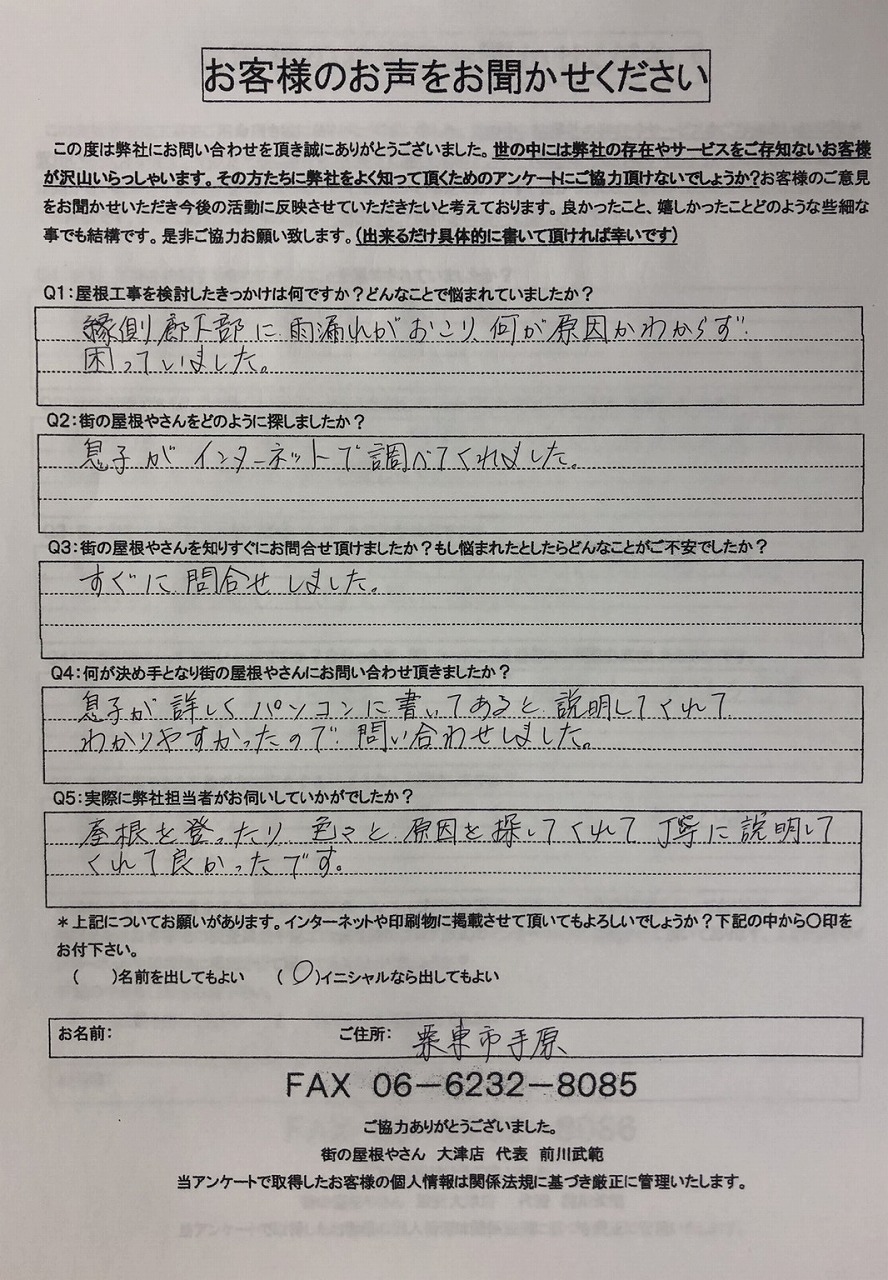 お客様のお声をお聞かせください
この度は弊社にお問い合わせを頂き誠にありがとうございました。世の中には弊社の存在やサービスをご存知ないお客様
が沢山いらっしゃいます。その方たちに弊社をよく知って頂くためのアンケートにご協力頂けないでしょうか?お客様のご意見
をお聞かせいただき今後の活動に反映させていただきたいと考えております。良かったこと、嬉しかったことどのような些細な
事でも結構です。是非ご協力お願い致します。(出来るだけ具体的に書いて頂ければ幸いです)
Q1:屋根工事を検討したきっかけは何ですか?どんなことで悩まれていましたか?
縁側廊下部に雨漏れがおこり、何が原因かわからず
困っていました。
Q2:街の屋根やさんをどのように探しましたか?
息子がインターネットで調べてくれました。
Q3:街の屋根やさんを知りすぐにお問合せ頂けましたか?もし悩まれたとしたらどんなことがご不安でしたか?
すぐに問合せしました。
Q4:何が決め手となり街の屋根やさんにお問い合わせ頂きましたか?
息子が詳しくパソコンに書いてあると説明してくれて
わかりやすかったので問い合わせしました。
Q5:実際に弊社担当者がお伺いしていかがでしたか?
屋根を登ったり色々と原因を探してくれて丁寧に説明して
くれて良かったです。
*上記についてお願いがあります。インターネットや印刷物に掲載させて頂いてもよろしいでしょうか?下記の中から〇印を
お付下さい。
( )名前を出してもよい (〇)イニシャルなら出してもよい
お名前: ご住所: 栗東市手原
FAX 06-6232-8085
ご協力ありがとうございました。
街の屋根やさん 大津店 代表 前川武範
当アンケートで取得したお客様の個人情報は関係法規に基づき厳正に管理いたします。